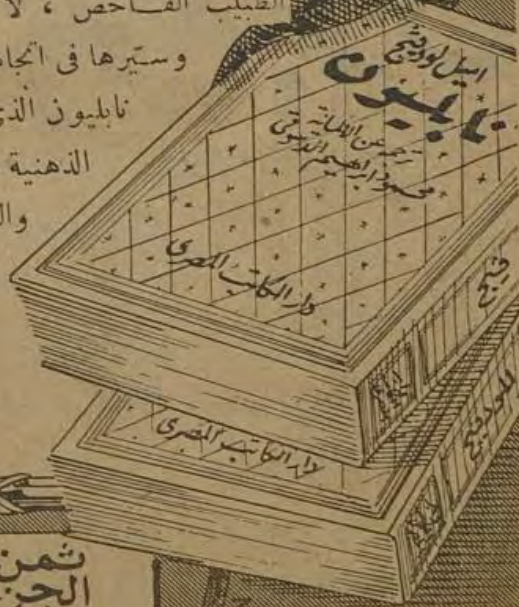 الطبيب الفاحص ، لا
وسيرها فى اتجاه
نابليون الذى
الذهنية
وال
اميل لودفيج
نابليون
ترجمه عن الألمانية
محمود ابراهيم الدسوقى
دار الكاتب المصرى
فيج
للودفيج
دار الكاتب المصرى
ثمن
الجز